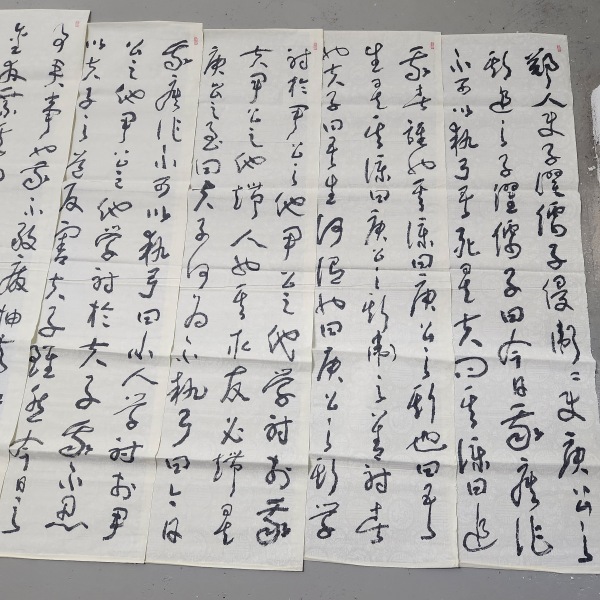 鄭人使子濯孺子侵衛〻使庾公之
斯追之子濯孺子曰今日我疾作
不可以執弓吾死矣夫問其僕曰追
我者誰也其僕曰庾公之斯也曰吾
生矣其僕曰庾公之斯衛之善射者
也夫子曰吾生何謂也曰庾公之斯學
射於尹公之他尹公之他學射於我
夫尹公之他端人也其取友必端矣
庾公之斯至曰夫子何為不執弓曰今日
我疾作不可以執弓曰小人學射於尹
公之他尹公之他學射於夫子我不忍
以夫子之道反害夫子雖然今日之
事君事也我不敢廢抽矢
金發乘矢而